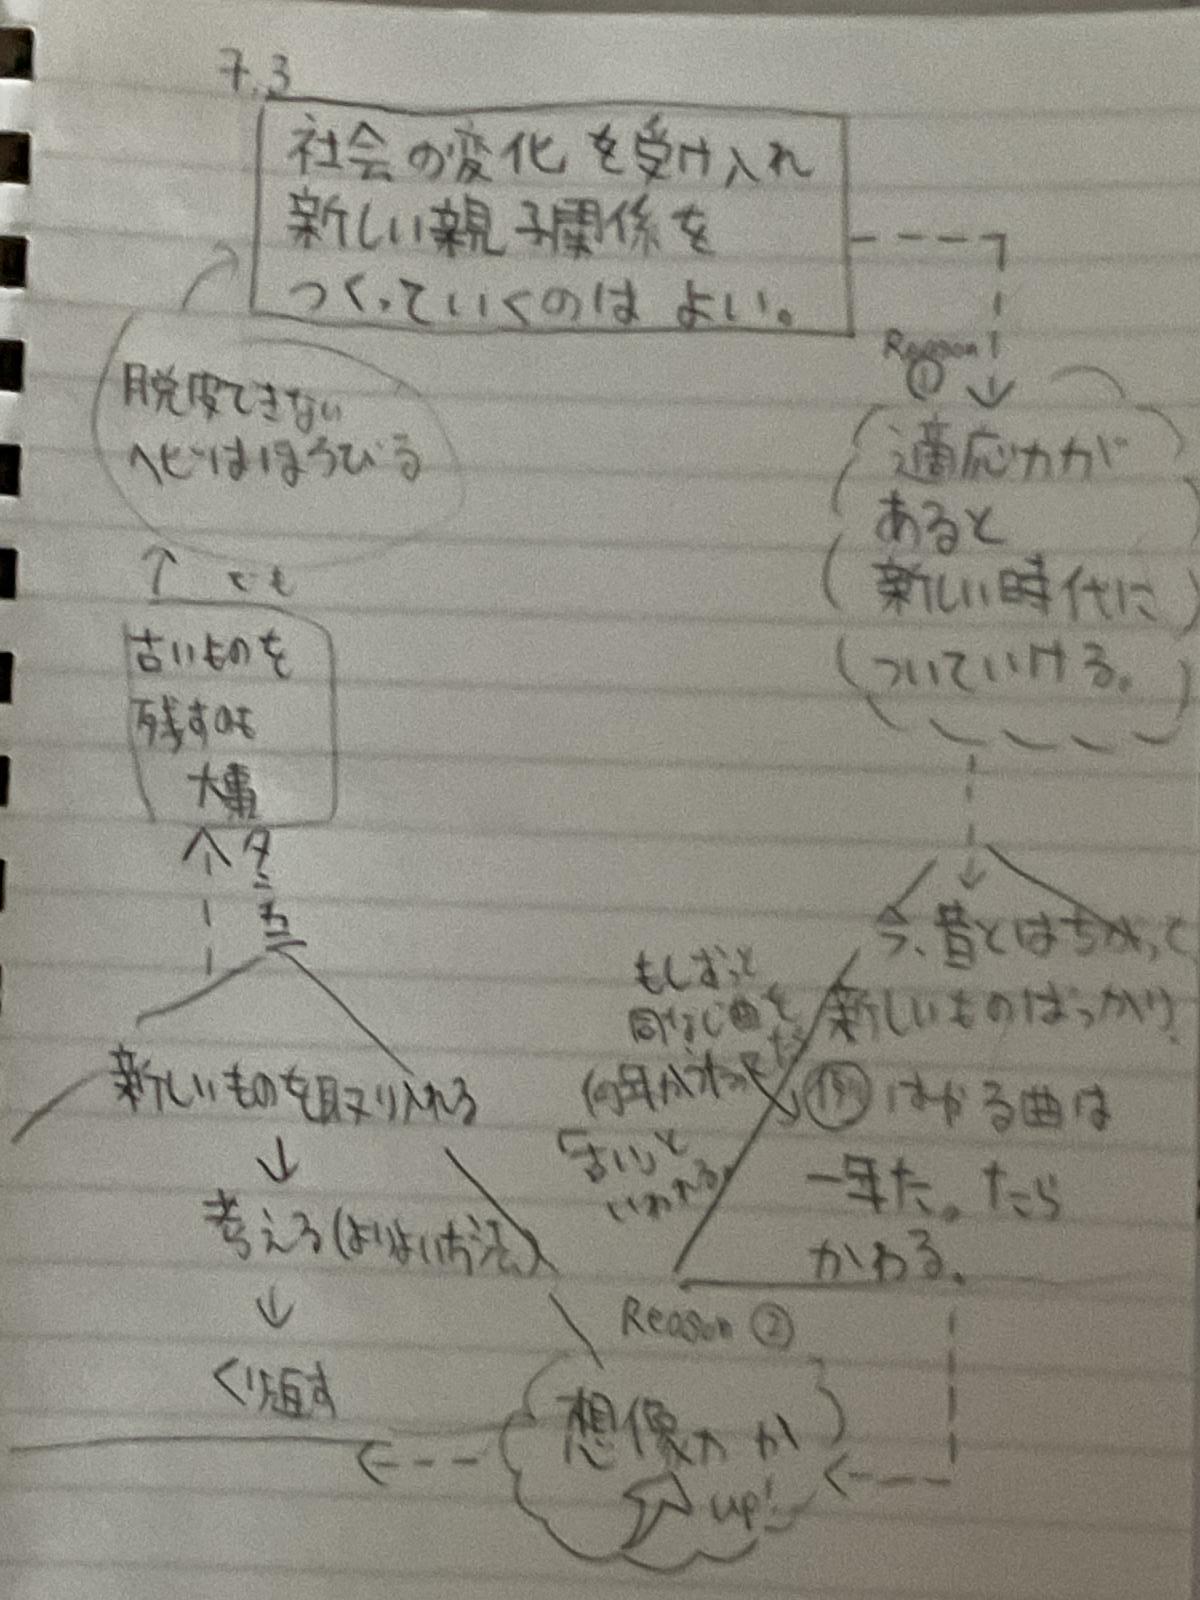 7.3
社会の変化を受け入れ
新しい親子関係を
つくっていくのはよい。
Reason!
①
適応力が
あると
新しい時代に
ついていける。
今、昔とはちがって
新しいものばっかり
例 はやる曲は
一年たったら
かわる。
もしずっと
同なじ曲を
何年か
「古い」と
いわれる
Reason ②
想像力が
up!
新しいものを取り入れる
↓
考える(よりよい方法)
↓
くり返す
古いものを
残すのも
大事
でも
脱皮できない
ヘビはほろびる